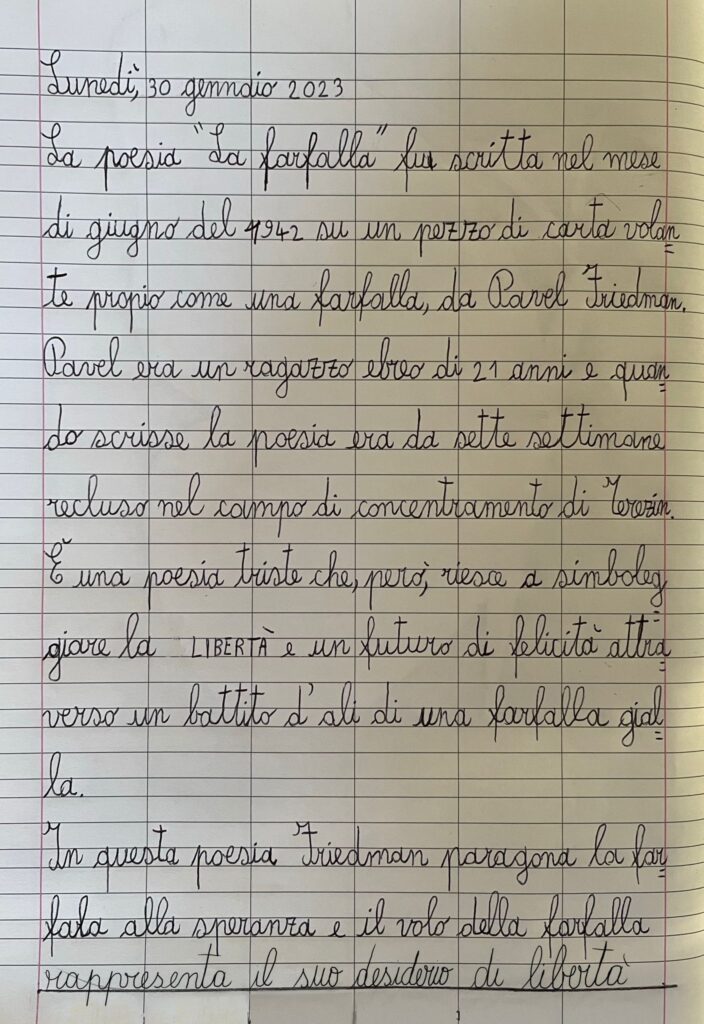 Lunedì, 30 gennaio 2023
La poesia "La farfalla" fu scritta nel mese
di giugno del 1942 su un pezzo di carta volan=
te propio come una farfalla, da Pavel Friedman.
Pavel era un ragazzo ebreo di 21 anni e quan=
do scrisse la poesia era da sette settimane
recluso nel campo di concentramento di Terezin.
È una poesia triste che, però, riesce a simboleg=
giare la LIBERTÀ e un futuro di felicità attra=
verso un battito d'ali di una farfalla gial=
la.
In questa poesia Friedman paragona la far=
fala alla speranza e il volo della farfalla
rappresenta il suo desiderio di libertà.